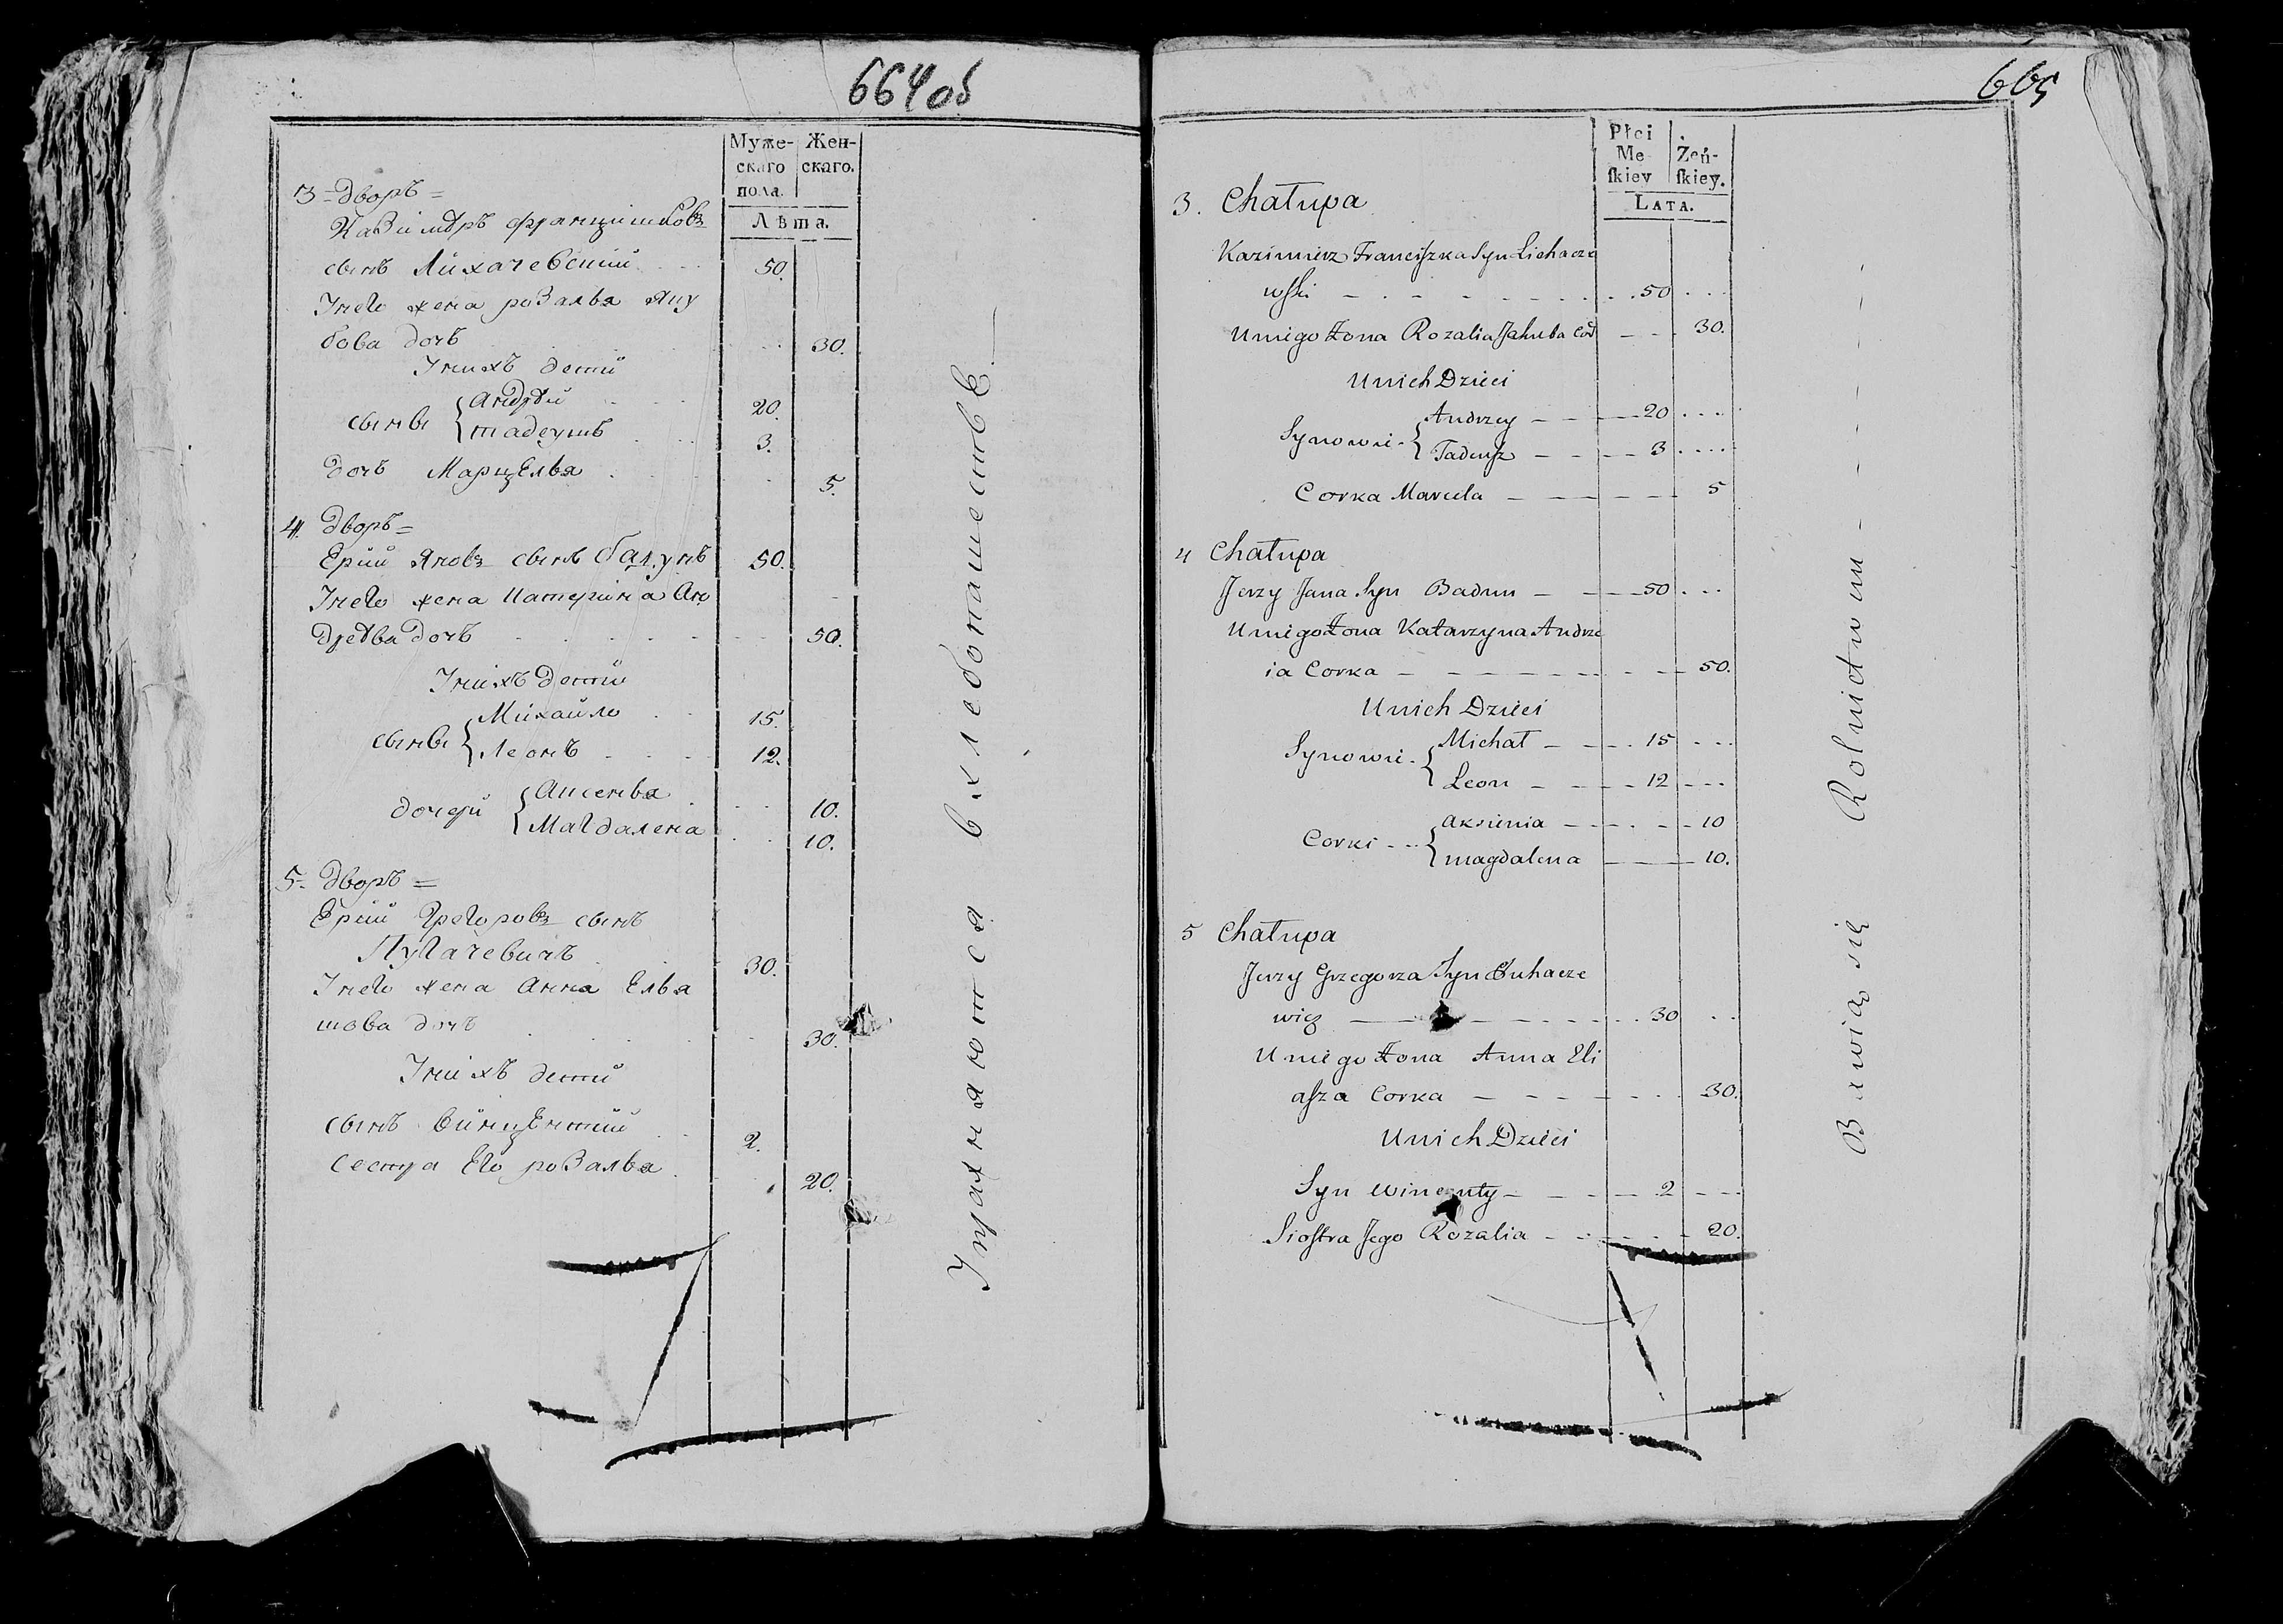 664 об
Муже-
скаго
пола.
Жен-
скаго.
Лѣта.
3 = дворъ =
Казимѣръ францишковъ
сынъ Лихачевский 50.
Унего жена розалья Яку
бова дочь 30.
Унихъ дети
сыны { Андрѣй 20.
тадеушъ 3.
дочь Марцелья 5.
4. дворъ =
Ерий Яновъ сынъ 50.
Унего жена Катерина Ан
дреева дочь 50.
Унихъ дети
сыны { Михайло 15.
Леонъ 12.
дочери { Аксенья 10.
Магдалена 10.
5 = дворъ =
Ерий Грегоровъ сынъ
Пугачевичъ 30.
Унего жена Анна Елья
шова дочь 30.
Унихъ дети
сынъ Винцентий 2.
сестра Его розалья 20.
Упражняются в хлебопашестве
665
Płci
Me-
ſkiey
Zeń-
ſkiey.
LATA.
3. Chałupa
Kazimierz Franciſzka Syn Lichacze
wſki 50
Uniego Żona Rozalia Jakuba Cor 30.
Unich Dzieci
Synowie { Andrzey 20
Tadeuſz 3
Corka Marcela 5
4 Chałupa
Jerzy Jana Syn Badun 50
Uniego Żona Katarzyna Andrze
ia Corka 50.
Unich Dzieci
Synowie { Michał 15
Leon 12
Corki { Aksienia 10
magdalena 10.
5 Chałupa
Jerzy Grzegorza Syn
wicz 30
Uniego Żona Anna Eli
aſza Corka 30.
Unich Dzieci
Syn Wincenty 2
Sioſtra Jego Rozalia 20.
Bawią się Rolnictwem